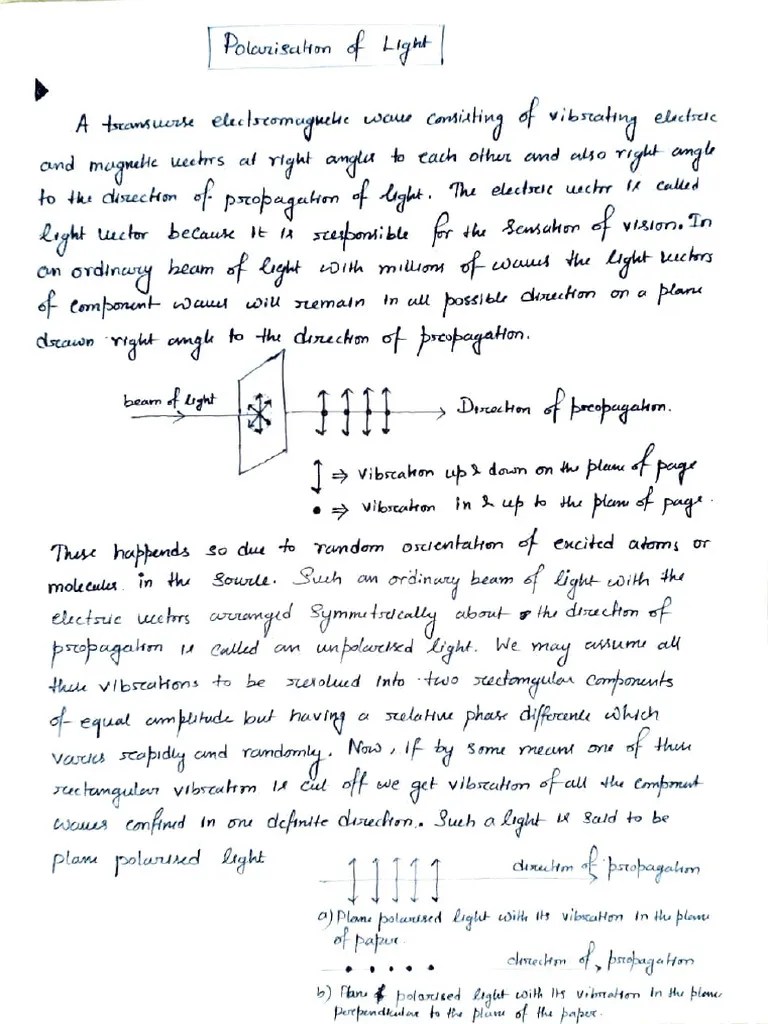 Polarisation of Light
A transverse electromagnetic wave consisting of vibrating electric
and magnetic vectors at right angles to each other and also right angle
to the direction of propagation of light. The electric vector is called
light vector because it is responsible for the sensation of vision. In
an ordinary beam of light with millions of waves the light vectors
of component waves will remain in all possible direction on a plane
drawn right angle to the direction of propagation.
beam of light
Direction of propagation.
↕ ⇒ vibration up & down on the plane of page
• ⇒ vibration in & up to the plane of page.
These happends so due to random orientation of excited atoms or
molecules in the source. Such an ordinary beam of light with the
electric vectors arranged symmetrically about the direction of
propagation is called an unpolarised light. We may assume all
these vibrations to be resolved into two rectangular components
of equal amplitude but having a relative phase difference which
varies rapidly and randomly. Now, if by some means one of these
rectangular vibration is cut off we get vibration of all the component
waves confined in one definite direction. Such a light is said to be
plane polarised light
direction of propagation
a) Plane polarised light with its vibration in the plane
of paper.
direction of propagation
b) Plane polarised light with its vibration in the plane
perpendicular to the plane of the paper.